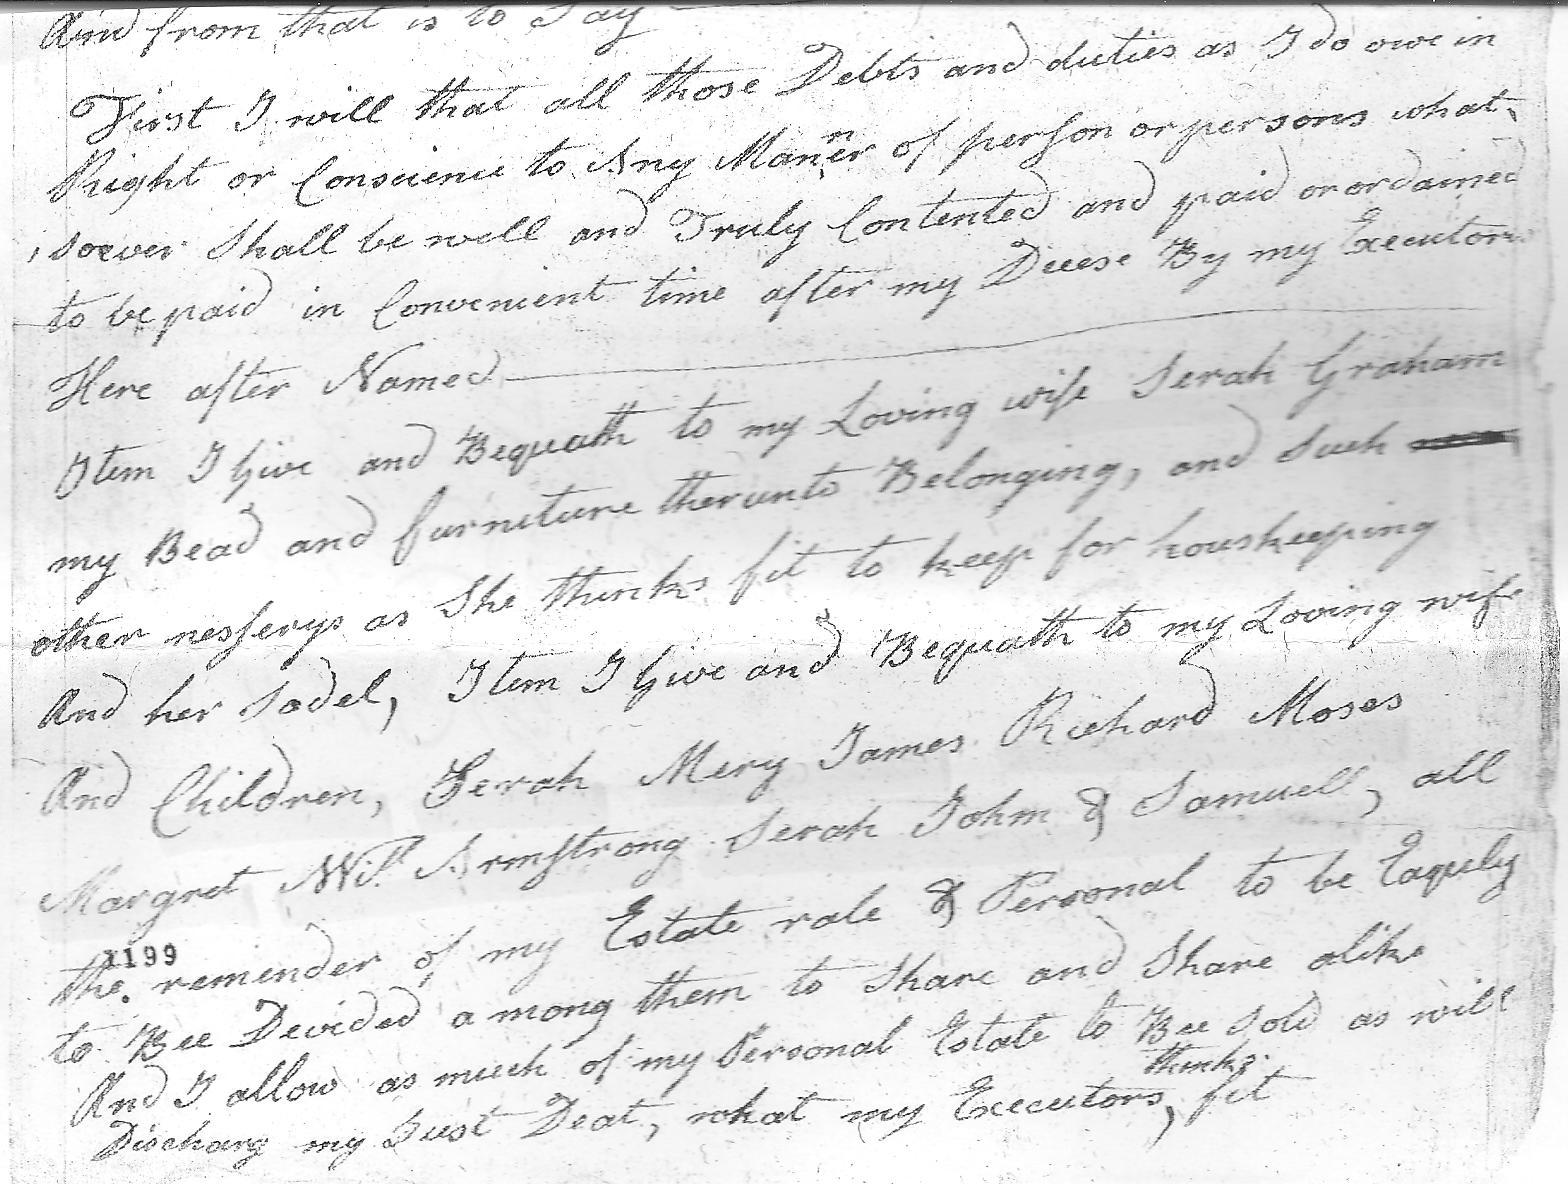 And from that is to Say
First I will that all those Debts and duties as I do owe in
Right or Conscience to Any Manner of person or persons what
soever Shall be well and Truly Contented and paid or ordained
to be paid in Convenient time after my Decese By my Executors
Here after Named
Item I Give and Bequath to my Loving wife Serah Graham
my Bead and furniture therunto Belonging, and Such
other nesserys as She thinks fit to keep for houskeeping
And her Sadel, Item I Give and Bequath to my Loving wife
And Children, Serah Mery James Richard Moses
Margret Will Armstrong Serah John & Samuell, all
1199
the remender of my Estate rale & Personal to be Eaquly
to Bee Devided among them to Share and Share alike
And I allow as much of my Personal Estate to Bee Sold as will
thinks
Discharg my Just Deat, what my Executors, fit